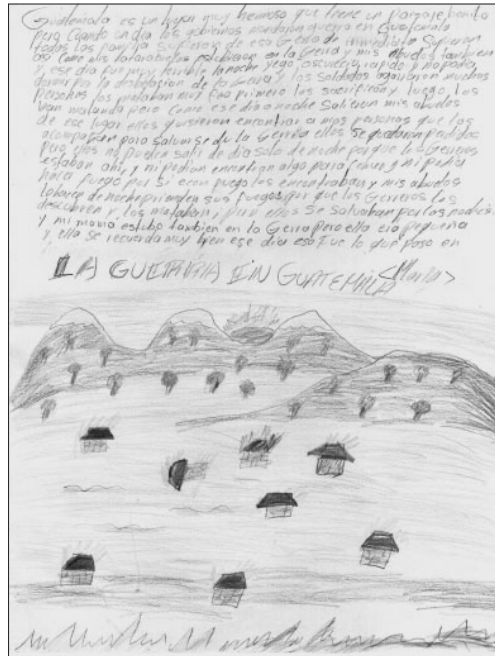 Guatemala es un lugar muy hermoso que tiene un Paisaje bonito
pero cuando un dia los gobiernos mandaron guerra en Guatemala
todas las familia sufrieron de esa Gerra de inmediato Sufrieron
asi como mis tatarabuelos estubieron en la Gerra y mis abuelos tambien
y ese dia fue muy terrible la noche yego oscurecio rapido y no podia
dormir por la de la Gerra y los soldados agarraron muchos
Personas los mataban muy feo primero los sacrifican y luego los
van matando pero como ese dia o noche Salieron mis abuelos
de ese lugar ellos quisieron encontrar a mas personas que los
acompañen para salirse de la Gerra ellos se quedaron perdidos
pero ellos no pueden salir de dia solo de noche porque los Gereros
estaban ahi y ni podian encontrar algo para comer y ni podia
hacer fuego por si ecen fuego los encontraban y mis abuelos
lo hacen de noche prienden sus fuegos por que los Gereros los
descubren y los mataban pero ellos se salvaban por las noches
y mi mama estubo tambien en la Gerra pero ella era pequeña
y ella se recuerda muy bien ese dia eso fue lo que paso en
LA GUERRA EN GUATEMALA